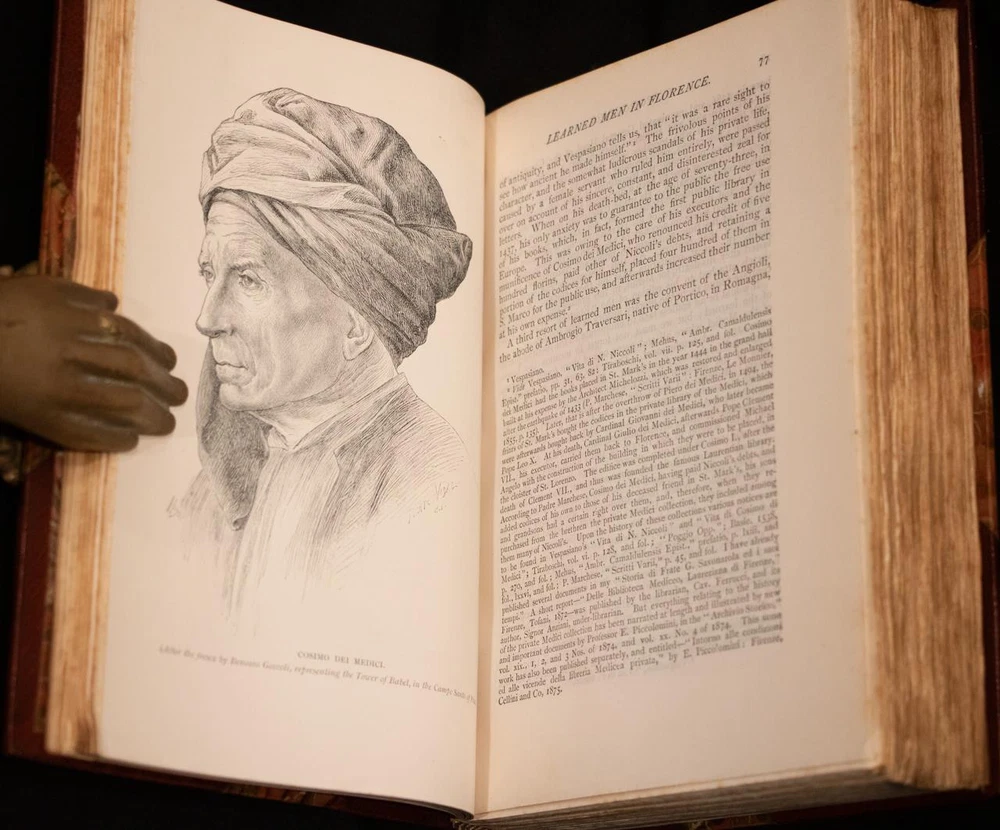 COSIMO DEI MEDICI.
(After the fresco by Benozzo Gozzoli, representing the Tower of Babel, in the Campo Santo of
77
LEARNED MEN IN FLORENCE.
of antiquity, and Vespasiano tells us, that "it was a rare sight to
see how ancient he made himself."¹ The frivolous points of his
character, and the somewhat ludicrous scandals of his private life,
caused by a female servant who ruled him entirely, were passed
over on account of his sincere, constant, and disinterested zeal for
letters. When on his death-bed, at the age of seventy-three, in
1437, his only anxiety was to guarantee to the public the free use
of his books, which, in fact, formed the first public library in
Europe. This was owing to the care of his executors and the
munificence of Cosimo dei Medici, who renounced his credit of five
hundred florins, paid other of Niccoli's debts, and retaining a
portion of the codices for himself, placed four hundred of them in
S. Marco for the public use, and afterwards increased their number
at his own expense.²
A third resort of learned men was the convent of the Angioli,
the abode of Ambrogio Traversari, native of Portico, in Romagna,
¹ Vespasiano.
² Vide Vespasiano, "Vita di N. Niccoli"; Mehus, "Ambr. Camaldulensis
Epist." prefatio, pp. 31, 63, 82; Tiraboschi, vol. vii. p. 125, and fol. Cosimo
dei Medici had the books placed in St. Mark's in the year 1444 in the grand hall
built at his expense by the Architect Michelozzi, which was restored and enlarged
after the earthquake of 1453 (P. Marchese, "Scritti Varii": Firenze, Le Monnier,
1855, p. 135). Later, that is after the overthrow of Piero dei Medici, in 1494, the
friars of St. Mark's bought the codices in the private library of the Medici, which
were afterwards bought back by Cardinal Giovanni dei Medici, who later became
Pope Leo X. At his death, Cardinal Giulio dei Medici, afterwards Pope Clement
VII., his executor, carried them back to Florence, and commissioned Michael
Angelo with the construction of the building in which they were to be placed, in
the cloister of St. Lorenzo. The edifice was completed under Cosimo I., after the
death of Clement VII., and thus was founded the famous Laurentian library.
According to Padre Marchese, Cosimo dei Medici, having paid Niccoli's debts, and
added codices of his own to those of his deceased friend in St. Mark's, his sons
and grandsons had a certain right over them, and, therefore, when they re-
purchased from the brethren the private Medici collection, they included among
them many of Niccoli's. Upon the history of these collections various notices are
to be found in Vespasiano's "Vita di N. Niccoli" and "Vita di Cosimo dei
Medici"; Tiraboschi, vol. vi. p. 128, and fol.; "Poggio Opp.," Basle, 1538,
p. 270, and fol.; Mehus, "Ambr. Camaldulensis Epist.," prefatio, p. lxiii, and
fol., lxxvi, and fol.; P. Marchese, "Scritti Varii," p. 45, and fol. I have already
published several documents in my "Storia di Frate G. Savonarola ed i suoi
tempi." A short report—"Delle Biblioteca Mediceo, Laurenziana di Firenze,"
Firenze, Tofani, 1872—was published by the librarian, Cav. Ferrucci, and its
author, Signor Anziani, under-librarian. But everything relating to the history
of the private Medici collection has been narrated at length and illustrated by new
and important documents by Professor E. Piccolomini, in the "Archivio Storico,"
vol. xix., 1, 2, and 3 Nos. of 1874, and vol. xx. No. 4 of 1874. This same
work has also been published separately, and entitled—"Intorno alle condizioni
ed alle vicende della libreria Medicea privata," by E. Piccolomini: Firenze,
Cellini and Co, 1875.